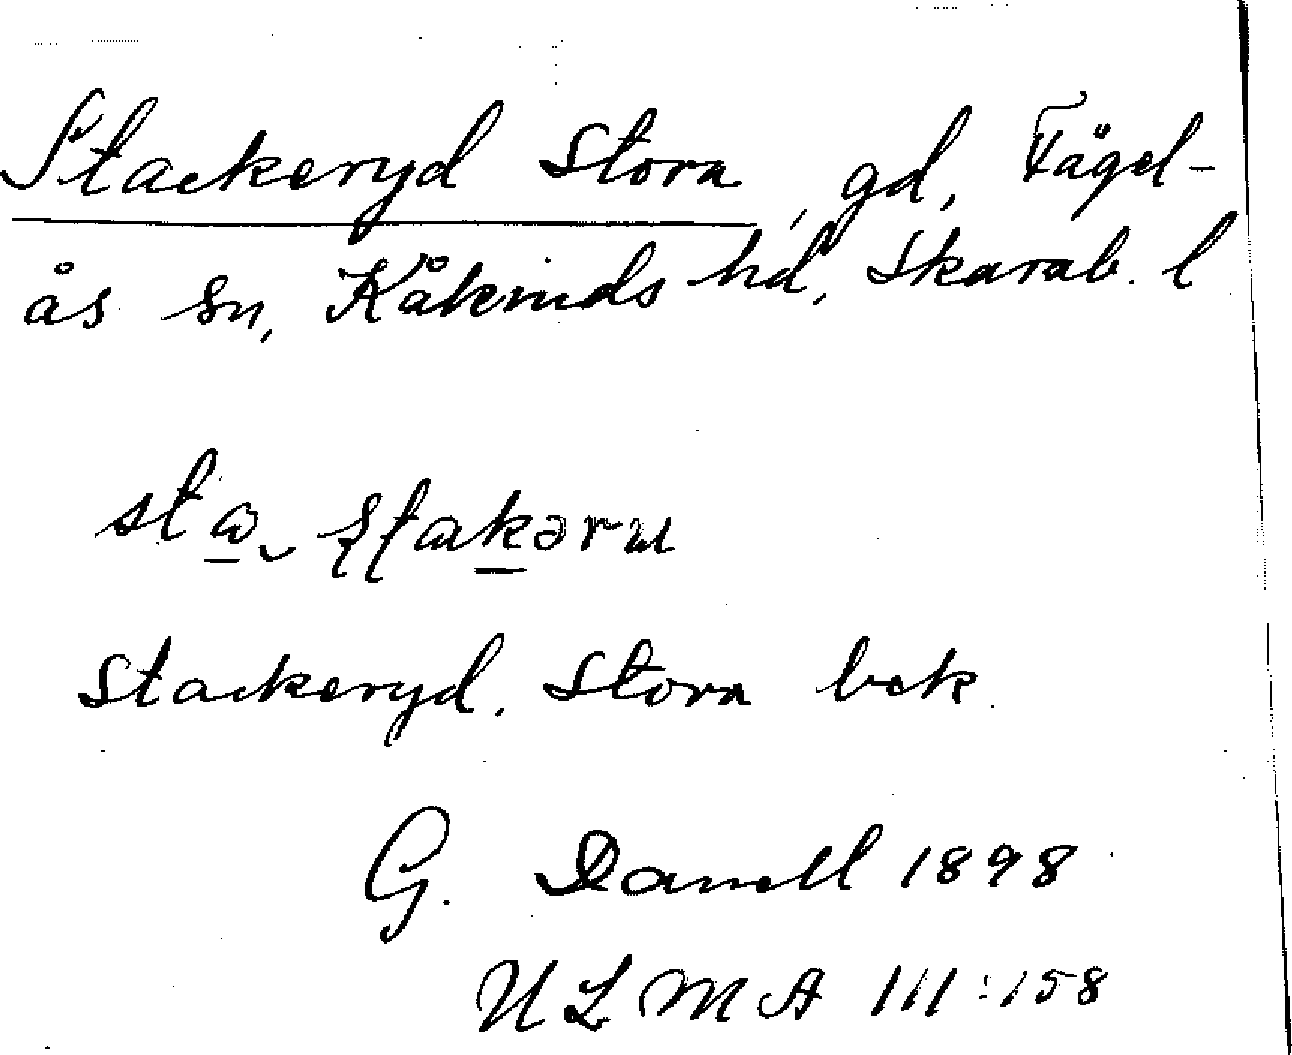 Stackeryd Stora, gd, Fågel-
ås sn, Kåkinds hd, Skarab. l
Stackeryd. Stora bek.
G. Danell 1898
ULMA 111:158